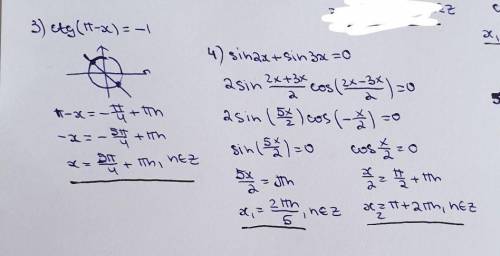 3) ctg(π-x) = -1
π-x = -π/4 + πn
-x = -5π/4 + πn
x = 5π/4 + πn, n∈Z
4) sin2x + sin3x = 0
2sin (2x+3x)/2 cos((2x-3x)/2) = 0
2sin(5x/2) cos(-x/2) = 0
sin(5x/2) = 0 cos x/2 = 0
5x/2 = πn x/2 = π/2 + πn
x₁ = 2πn/5, n∈Z x₂ = π + 2πn, n∈Z